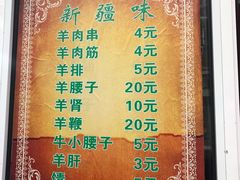 新疆味
羊肉串 4元
羊肉筋 4元
羊排 5元
羊腰子 20元
羊肾 10元
羊鞭 20元
牛小腰子 5元
羊肝 3元
馕